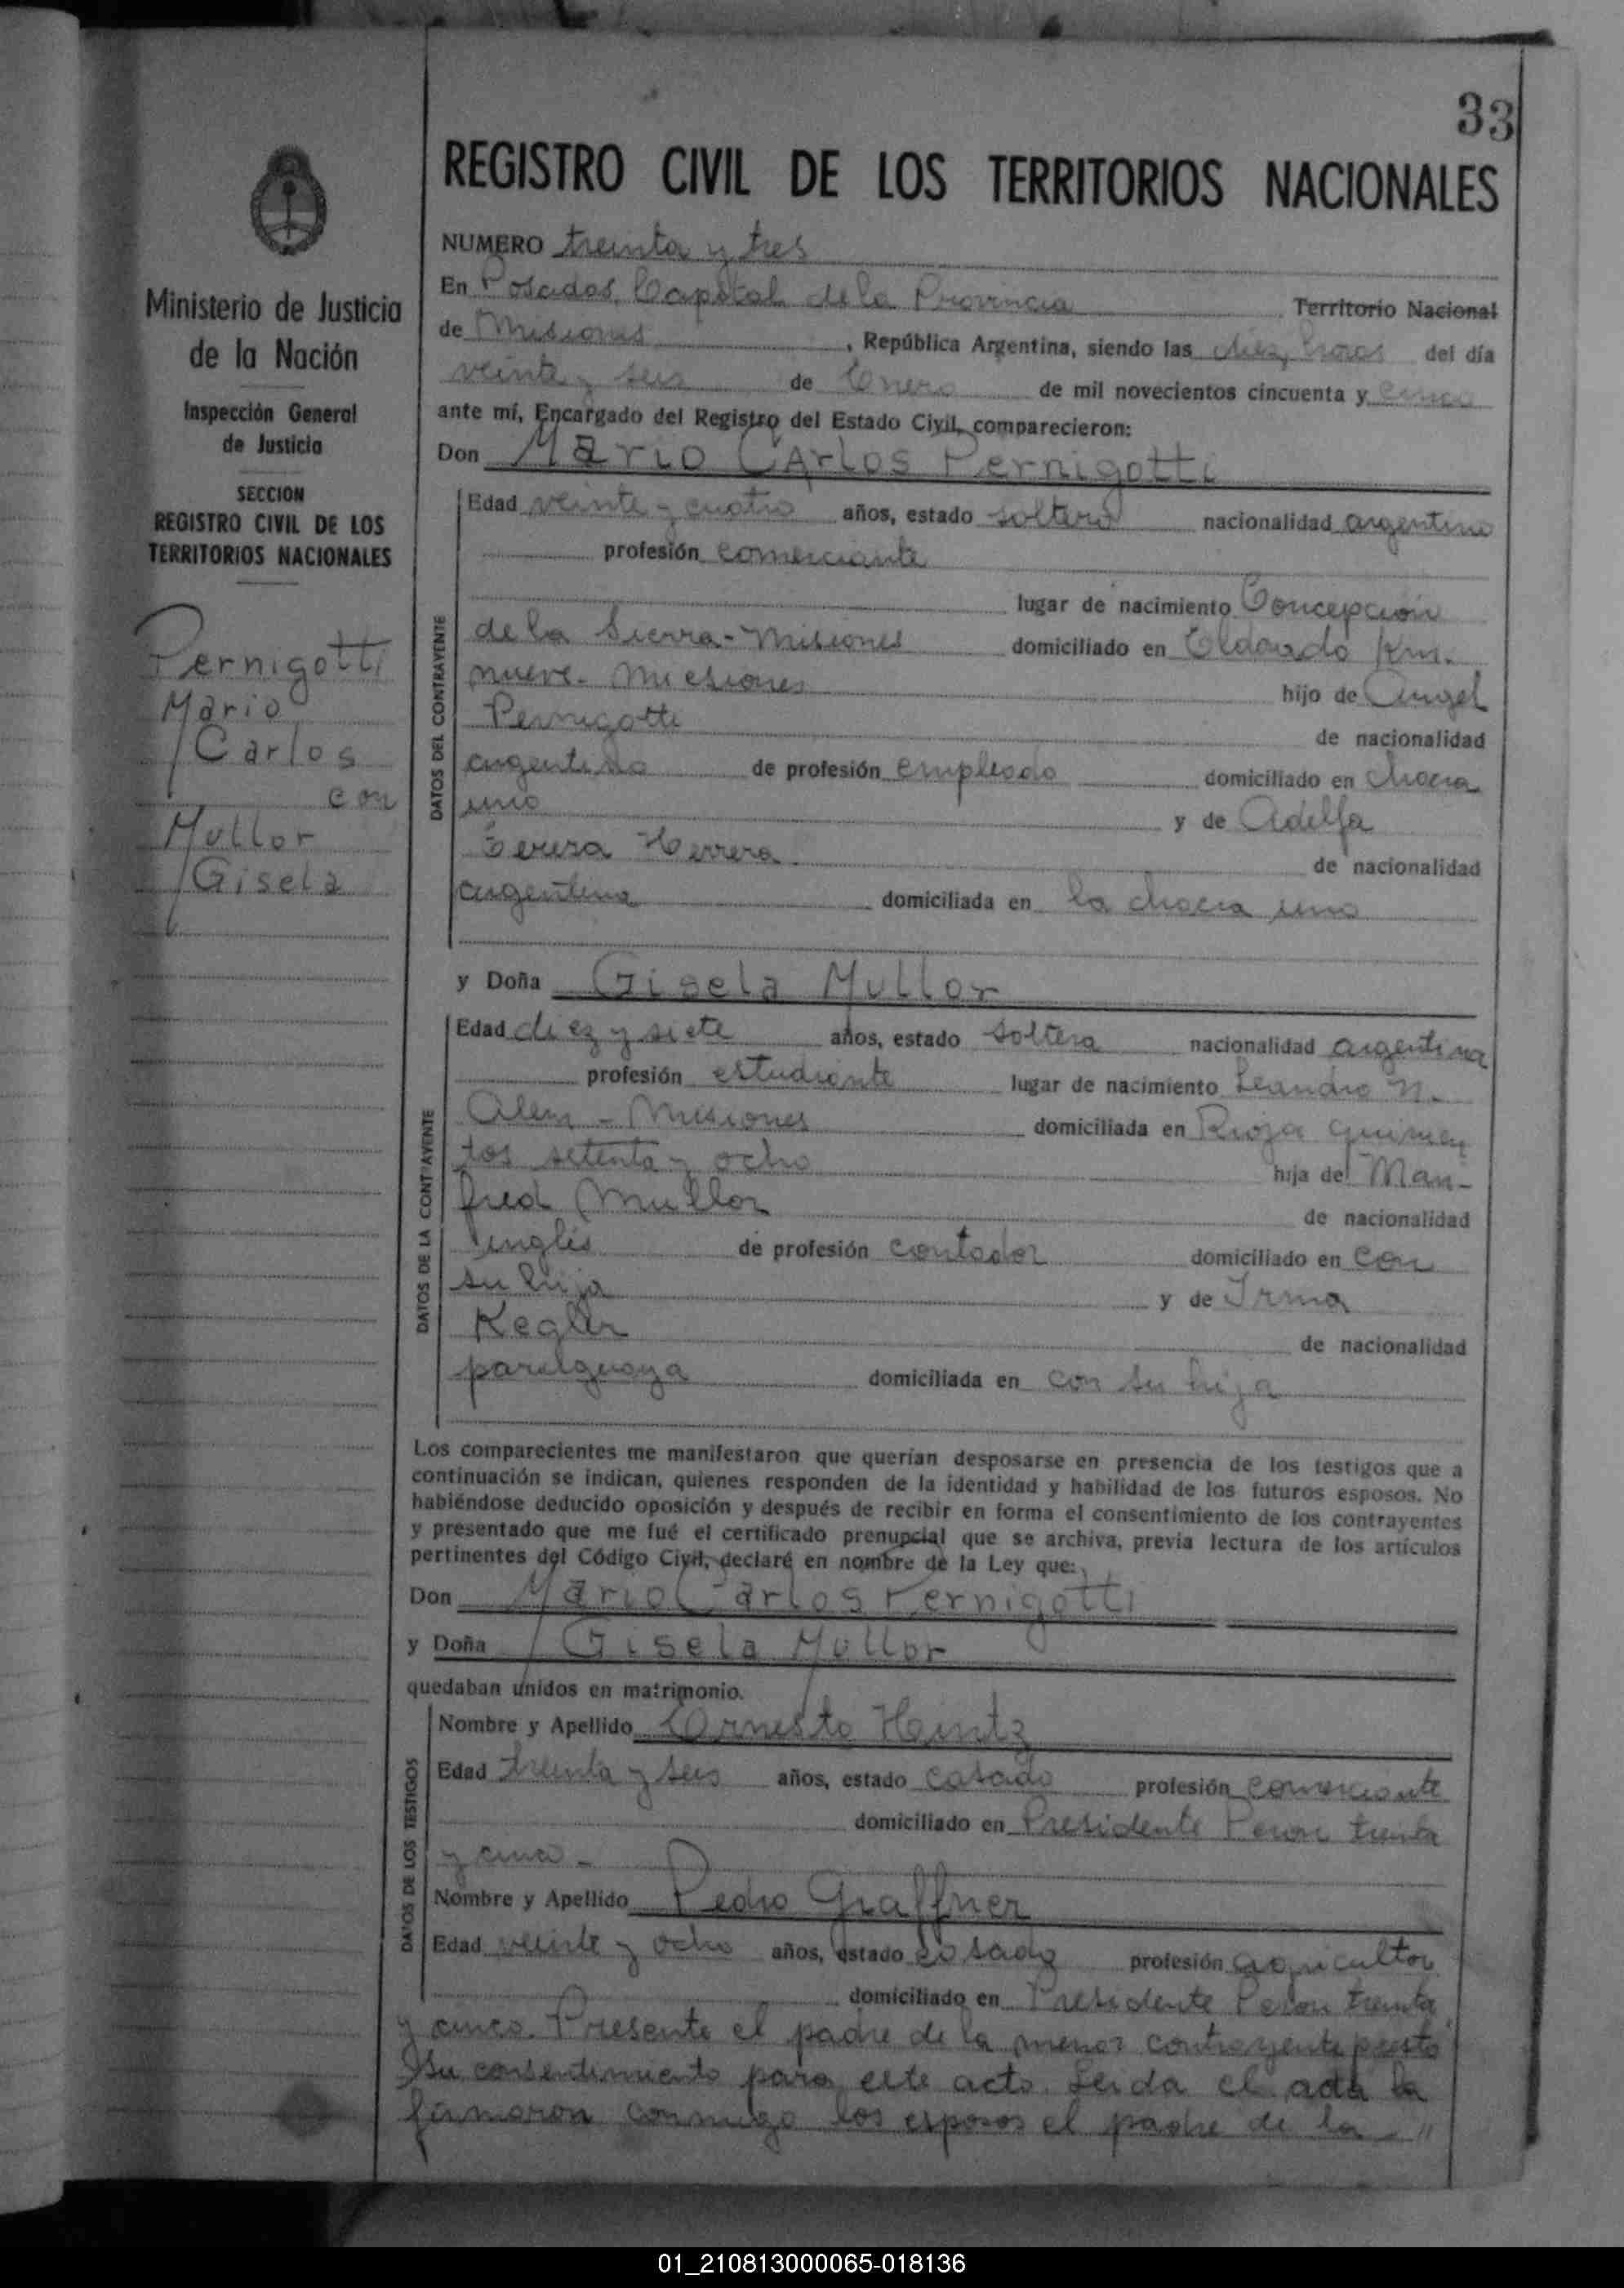 33
REGISTRO CIVIL DE LOS TERRITORIOS NACIONALES
Ministerio de Justicia
de la Nación
Inspección General
de Justicia
SECCION
REGISTRO CIVIL DE LOS
TERRITORIOS NACIONALES
Pernigotti
Mario
Carlos
con
Mullor
Gisela
NUMERO treinta y tres
En Posadas, Capital de la Provincia Territorio Nacional
de Misiones, República Argentina, siendo las diez horas del día
veinte y seis de Enero de mil novecientos cincuenta y cinco
ante mí, Encargado del Registro del Estado Civil, comparecieron:
Don Mario Carlos Pernigotti
DATOS DEL CONTRAYENTE
Edad veinte y cuatro años, estado soltero nacionalidad argentino
profesión comerciante
lugar de nacimiento Concepción
de la Sierra - Misiones domiciliado en Eldorado Km.
nueve - Misiones hijo de Angel
Pernigotti de nacionalidad
argentino de profesión empleado domiciliado en chacra
uno y de Adelfa
Teresa Herrera de nacionalidad
argentina domiciliada en la chacra uno
y Doña Gisela Mullor
DATOS DE LA CONTRAYENTE
Edad diez y siete años, estado soltera nacionalidad argentina
profesión estudiante lugar de nacimiento Leandro N.
Alem - Misiones domiciliada en Rioja quinien
tos setenta y ocho hija de Man-
fred Mullor de nacionalidad
inglés de profesión contador domiciliado en con
su hija y de Irma
Kegler de nacionalidad
paraguaya domiciliada en con su hija
Los comparecientes me manifestaron que querían desposarse en presencia de los testigos que a
continuación se indican, quienes responden de la identidad y habilidad de los futuros esposos. No
habiéndose deducido oposición y después de recibir en forma el consentimiento de los contrayentes
y presentado que me fué el certificado prenupcial que se archiva, previa lectura de los artículos
pertinentes del Código Civil, declaré en nombre de la Ley que:
Don Mario Carlos Pernigotti
y Doña Gisela Mullor
quedaban unidos en matrimonio.
DATOS DE LOS TESTIGOS
Nombre y Apellido Ernesto Heintz
Edad treinta y seis años, estado casado profesión comerciante
domiciliado en Presidente Peron treinta
y cinco -
Nombre y Apellido Pedro Graffner
Edad veinte y ocho años, estado casado profesión agricultor
domiciliado en Presidente Peron treinta
y cinco. Presente el padre de la menor contrayente prestó
su consentimiento para este acto. Leida el acta la
firmaron conmigo los esposos el padre de la "
01_210813000065-018136